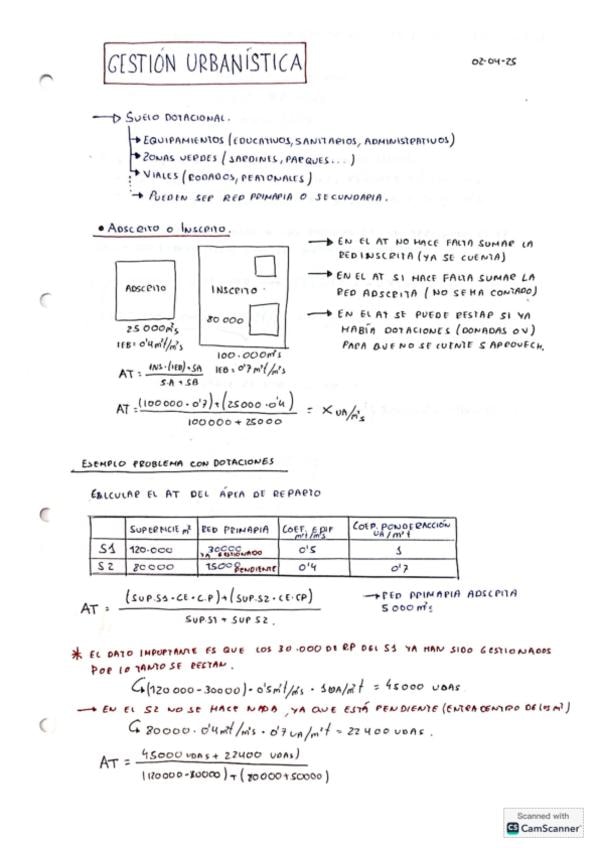 GESTIÓN URBANÍSTICA
02-04-25
→ SUELO DOTACIONAL.
→ EQUIPAMIENTOS (EDUCATIVOS, SANITARIOS, ADMINISTRATIVOS)
→ ZONAS VERDES (JARDINES, PARQUES...)
→ VIALES (RODADOS, PEATONALES)
→ PUEDEN SER RED PRIMARIA O SECUNDARIA.
• ADSCRITO O INSCRITO.
ADSCRITO
25000m²s
IEB=0'4m²t/m²s
INSCRITO
80000
100.000m²s
IEB=0'7m²t/m²s
→ EN EL AT NO HACE FALTA SUMAR LA
RED INSCRITA (YA SE CUENTA)
→ EN EL AT SI HACE FALTA SUMAR LA
RED ADSCRITA (NO SE HA CONTADO)
→ EN EL AT SE PUEDE RESTAR SI YA
HABÍA DOTACIONES (DONADAS O V)
PARA QUE NO SE CUENTE S APROVECH.
AT = INS·(IEB)+SA
SA+SB
AT = (100000·0'7)+(25000·0'4) = X UA/m²s
100000+25000
EJEMPLO PROBLEMA CON DOTACIONES
CALCULAR EL AT DEL ÁREA DE REPARTO
SUPERFICIE m² RED PRIMARIA COEF. EDIF m²t/m²s COEF. PONDERACCIÓN UA/m²t
S1 120.000 30000 YA GESTIONADO 0'5 1
S2 80000 15000 PENDIENTE 0'4 0'7
AT = (SUP.S1·CE·C.P)+(SUP.S2·CE·CP)
SUP.S1+SUP S2.
→ RED PRIMARIA ADSCRITA
5000m²s
* EL DATO IMPORTANTE ES QUE LOS 30.000 DE RP DEL S1 YA HAN SIDO GESTIONADOS
POR LO TANTO SE RESTAN.
(120000-30000)·0'5m²t/m²s·1UA/m²t = 45000 UDAS
→ EN EL S2 NO SE HACE NADA, YA QUE ESTÁ PENDIENTE (ENTRA DENTRO DE m²)
80000·0'4m²t/m²s·0'7UA/m²t = 22400 UDAS.
AT = 45000 UDAS + 22400 UDAS)
(120000-30000)+(80000+5000)
Scanned with
CS CamScanner